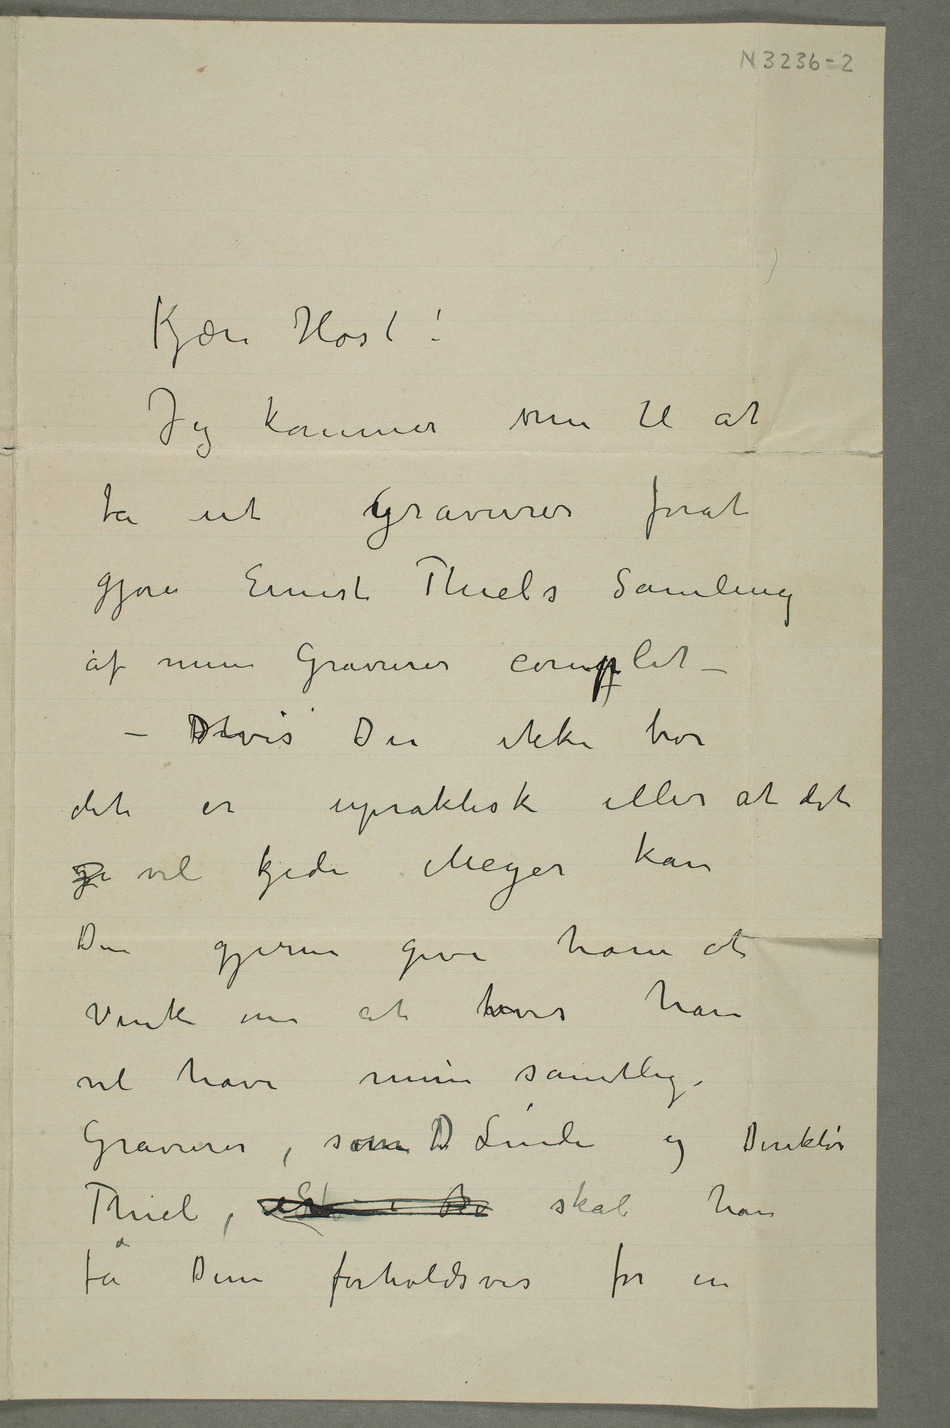 N 3236-2
Kjære Høst!
Jeg kommer nu til at
ta ut Gravurer forat
gjøre Ernest Thiels Samling
af mine Gravurer complet –
– Hvis De ikke tror
det er upraktisk eller at det
vil kjede Meyer kan
De gjerne give ham et
Vink om at hvis han
vil have mine samtlige
Gravurer, som D Linde og Direktør
Thiel, skal han
få Dem forholdsvis for en